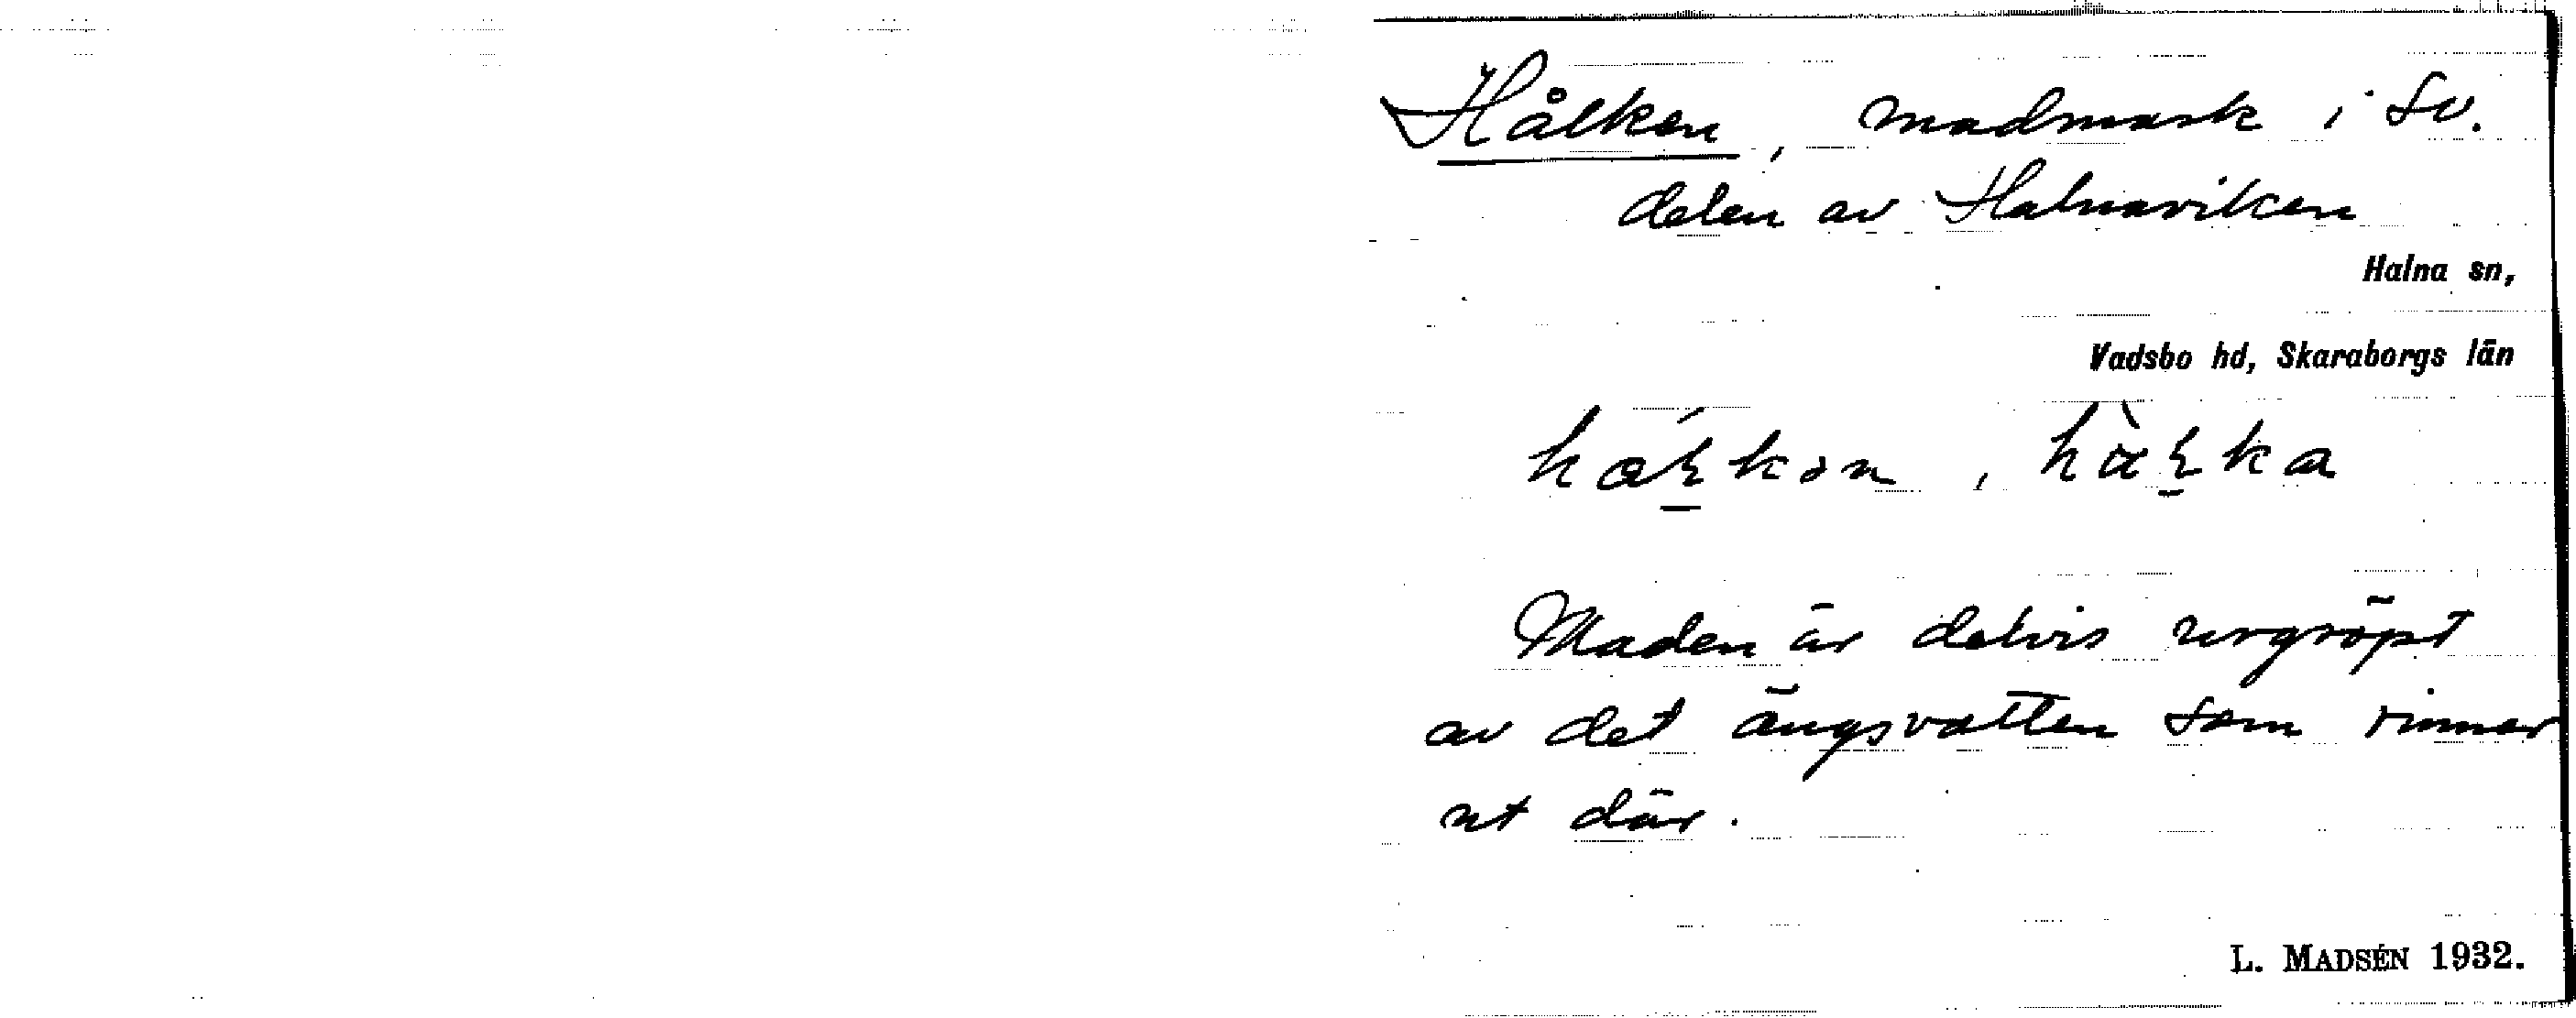 Hålken, madmark i sv.
delen av Halnaviken
Halna sn,
Vadsbo hd, Skaraborgs län
Maden är delvis urgröpt
av det ängsvatten som rinner
ut där.
L. MADSÉN 1932.